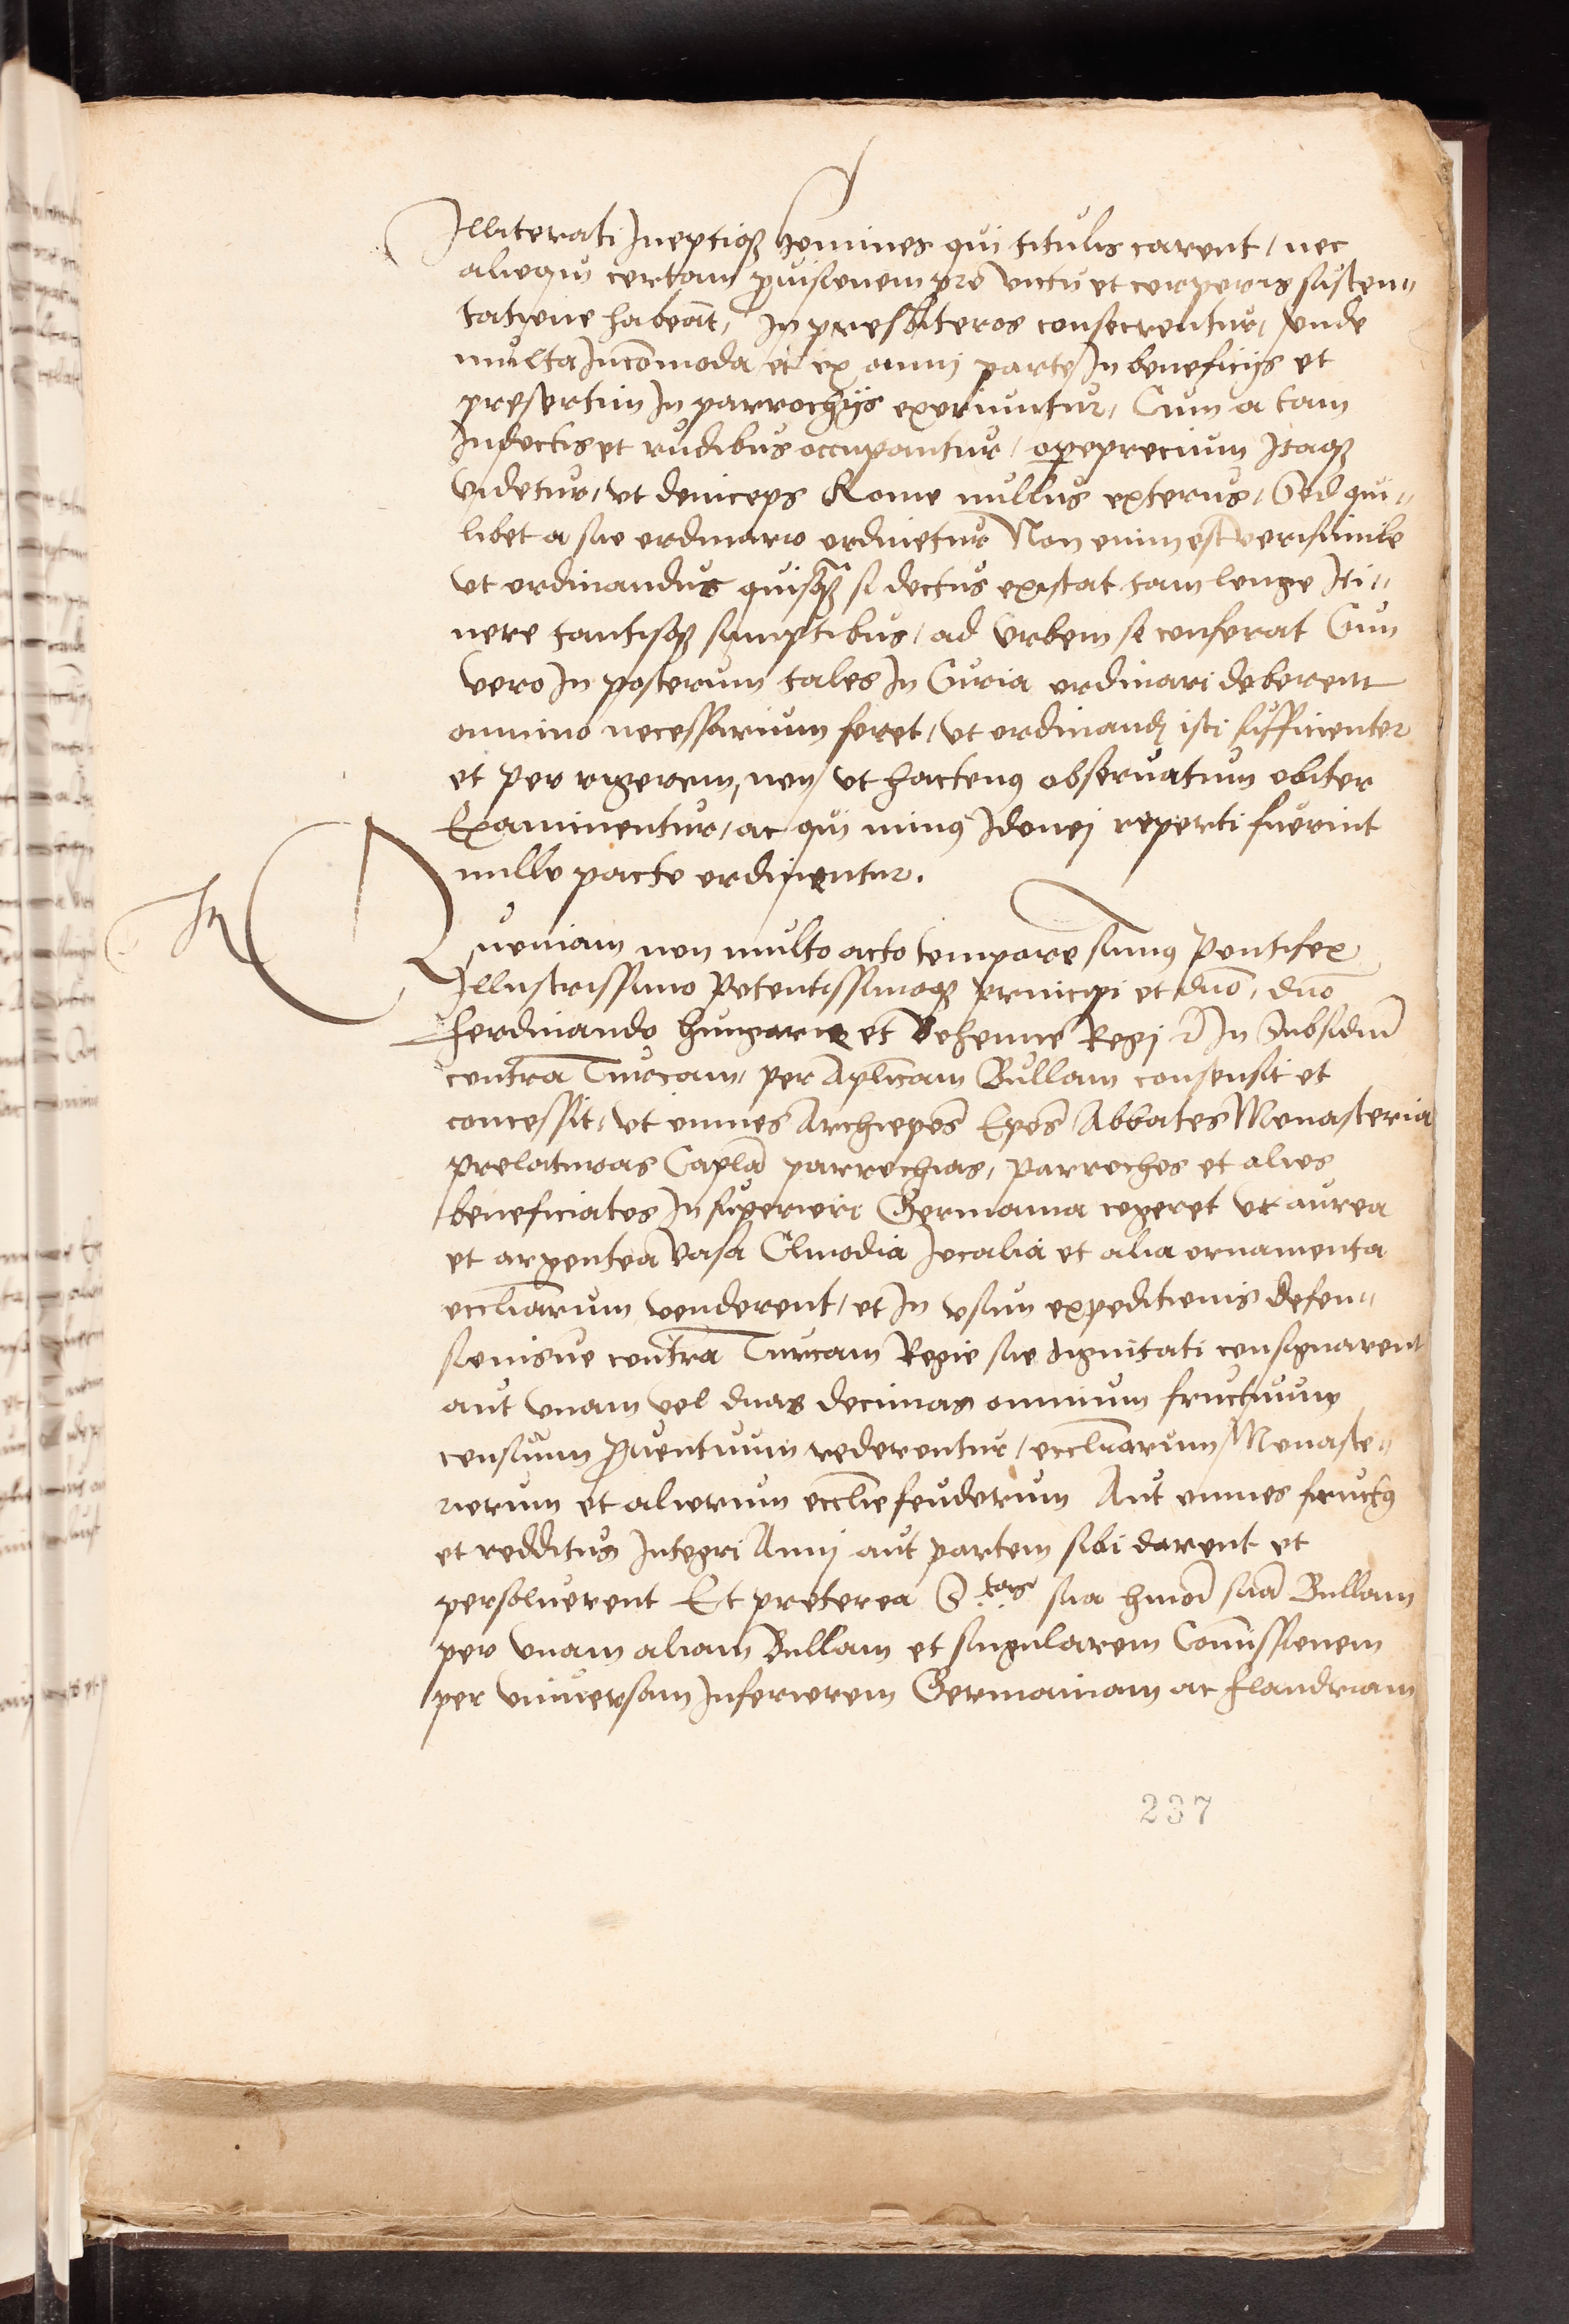 Illiterati Ineptiqȝ homines qui titulis carent / nec
alioqui certam ꝓuisionem pro victu et corporis susten„
tatione habeāt, In presbiteros consecrentur, vnde
multa Incōmoda et ex omnj parte In beneficijs et
presertim In parrochijs exoriuntur, Cum a tam
Indoctis et rudibus occupantur / opeprecium Itaqȝ
Videtur, vt deinceps Rome nullus exterus, Sed qui„
libet a suo ordinario ordinetur Non enim est verisimile
vt ordinandus quisqȝ si doctus existat tam longo Iti„
nere tantisqȝ sumptibus, ad Vrbem se conferat Cum
vero In posterum tales In Curia ordinari deberent
omnino necessarium foret, vt ordinandj isti sufficienter
et per rigorem, non vt hactenꝰ obseruatum obiter
Examinentur, ac qui minꝰ Idonej reperti fuerint
nullo pacto ordinentur.
In
Quoniam non multo acto tempore sumꝰ Pontifex
Illustrissimo Potentissimoqȝ principi et dn̄o, dn̄o
Ferdinando Hungarie et Bohemie Regj ⁊c̄ In Subsidiū
contra Turcam, per Aplīcam Bullam consensit et
concessit, vt omnes Archiepōs Epōs Abbates Monasteria
prelaturas Caplā parrochias, parrochos et alios
beneficiatos In superiori Germania cogeret vt aurea
et argentea vasa Clinodia Iocalia et alia ornamenta
eccliārum venderent, et In vsum expeditionis defen„
sionisue contra Turcam Regie sue dignitati consignarent
aut vnam vel duas decimas omnium fructuum
censuum ꝓuentuum redderentur, eccliārum Monaste„
riorum et aliorum ecclīe feudorum Aut omnes fructꝰ
et redditus Integri Annj aut partem sibi darent et
persoluerent Et preterea S.tas sua hm̄oi suā Bullam
per vnam aliam Bullam et singularem Com̄issionem
per vniuersam Inferiorem Germaniam ac Flandriam
237